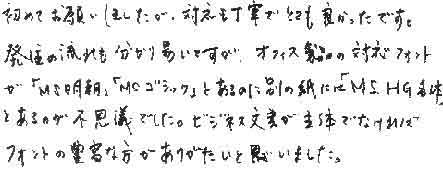 初めてお願いしましたが、対応も丁寧でとても良かったです。
発注の流れも分かり易いですが、オフィス製品の対応フォント
が「MS明朝」「MSゴシック」とあるのに別の紙には「MS、HG書体」
とあるのが不思議でした。ビジネス文書が主体でなければ
フォントの豊富な方がありがたいと思いました。